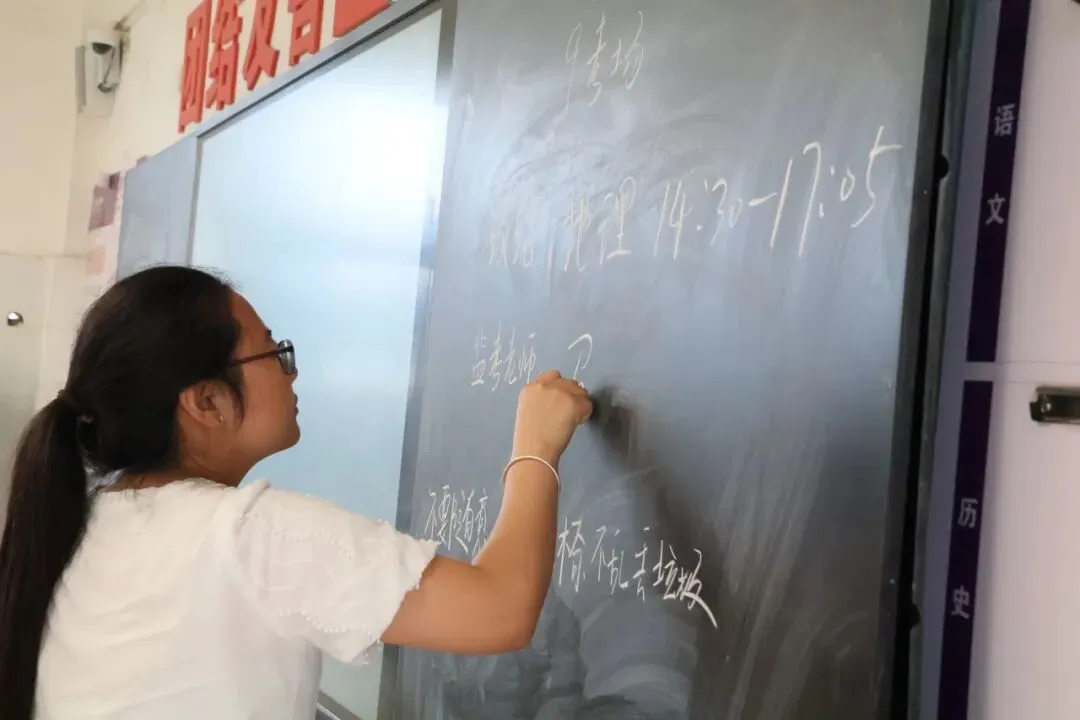 团结友
9考场
政治,地理 14:30-17:05
监考老师
不要随意
桥,不乱丢垃圾
语文
历史